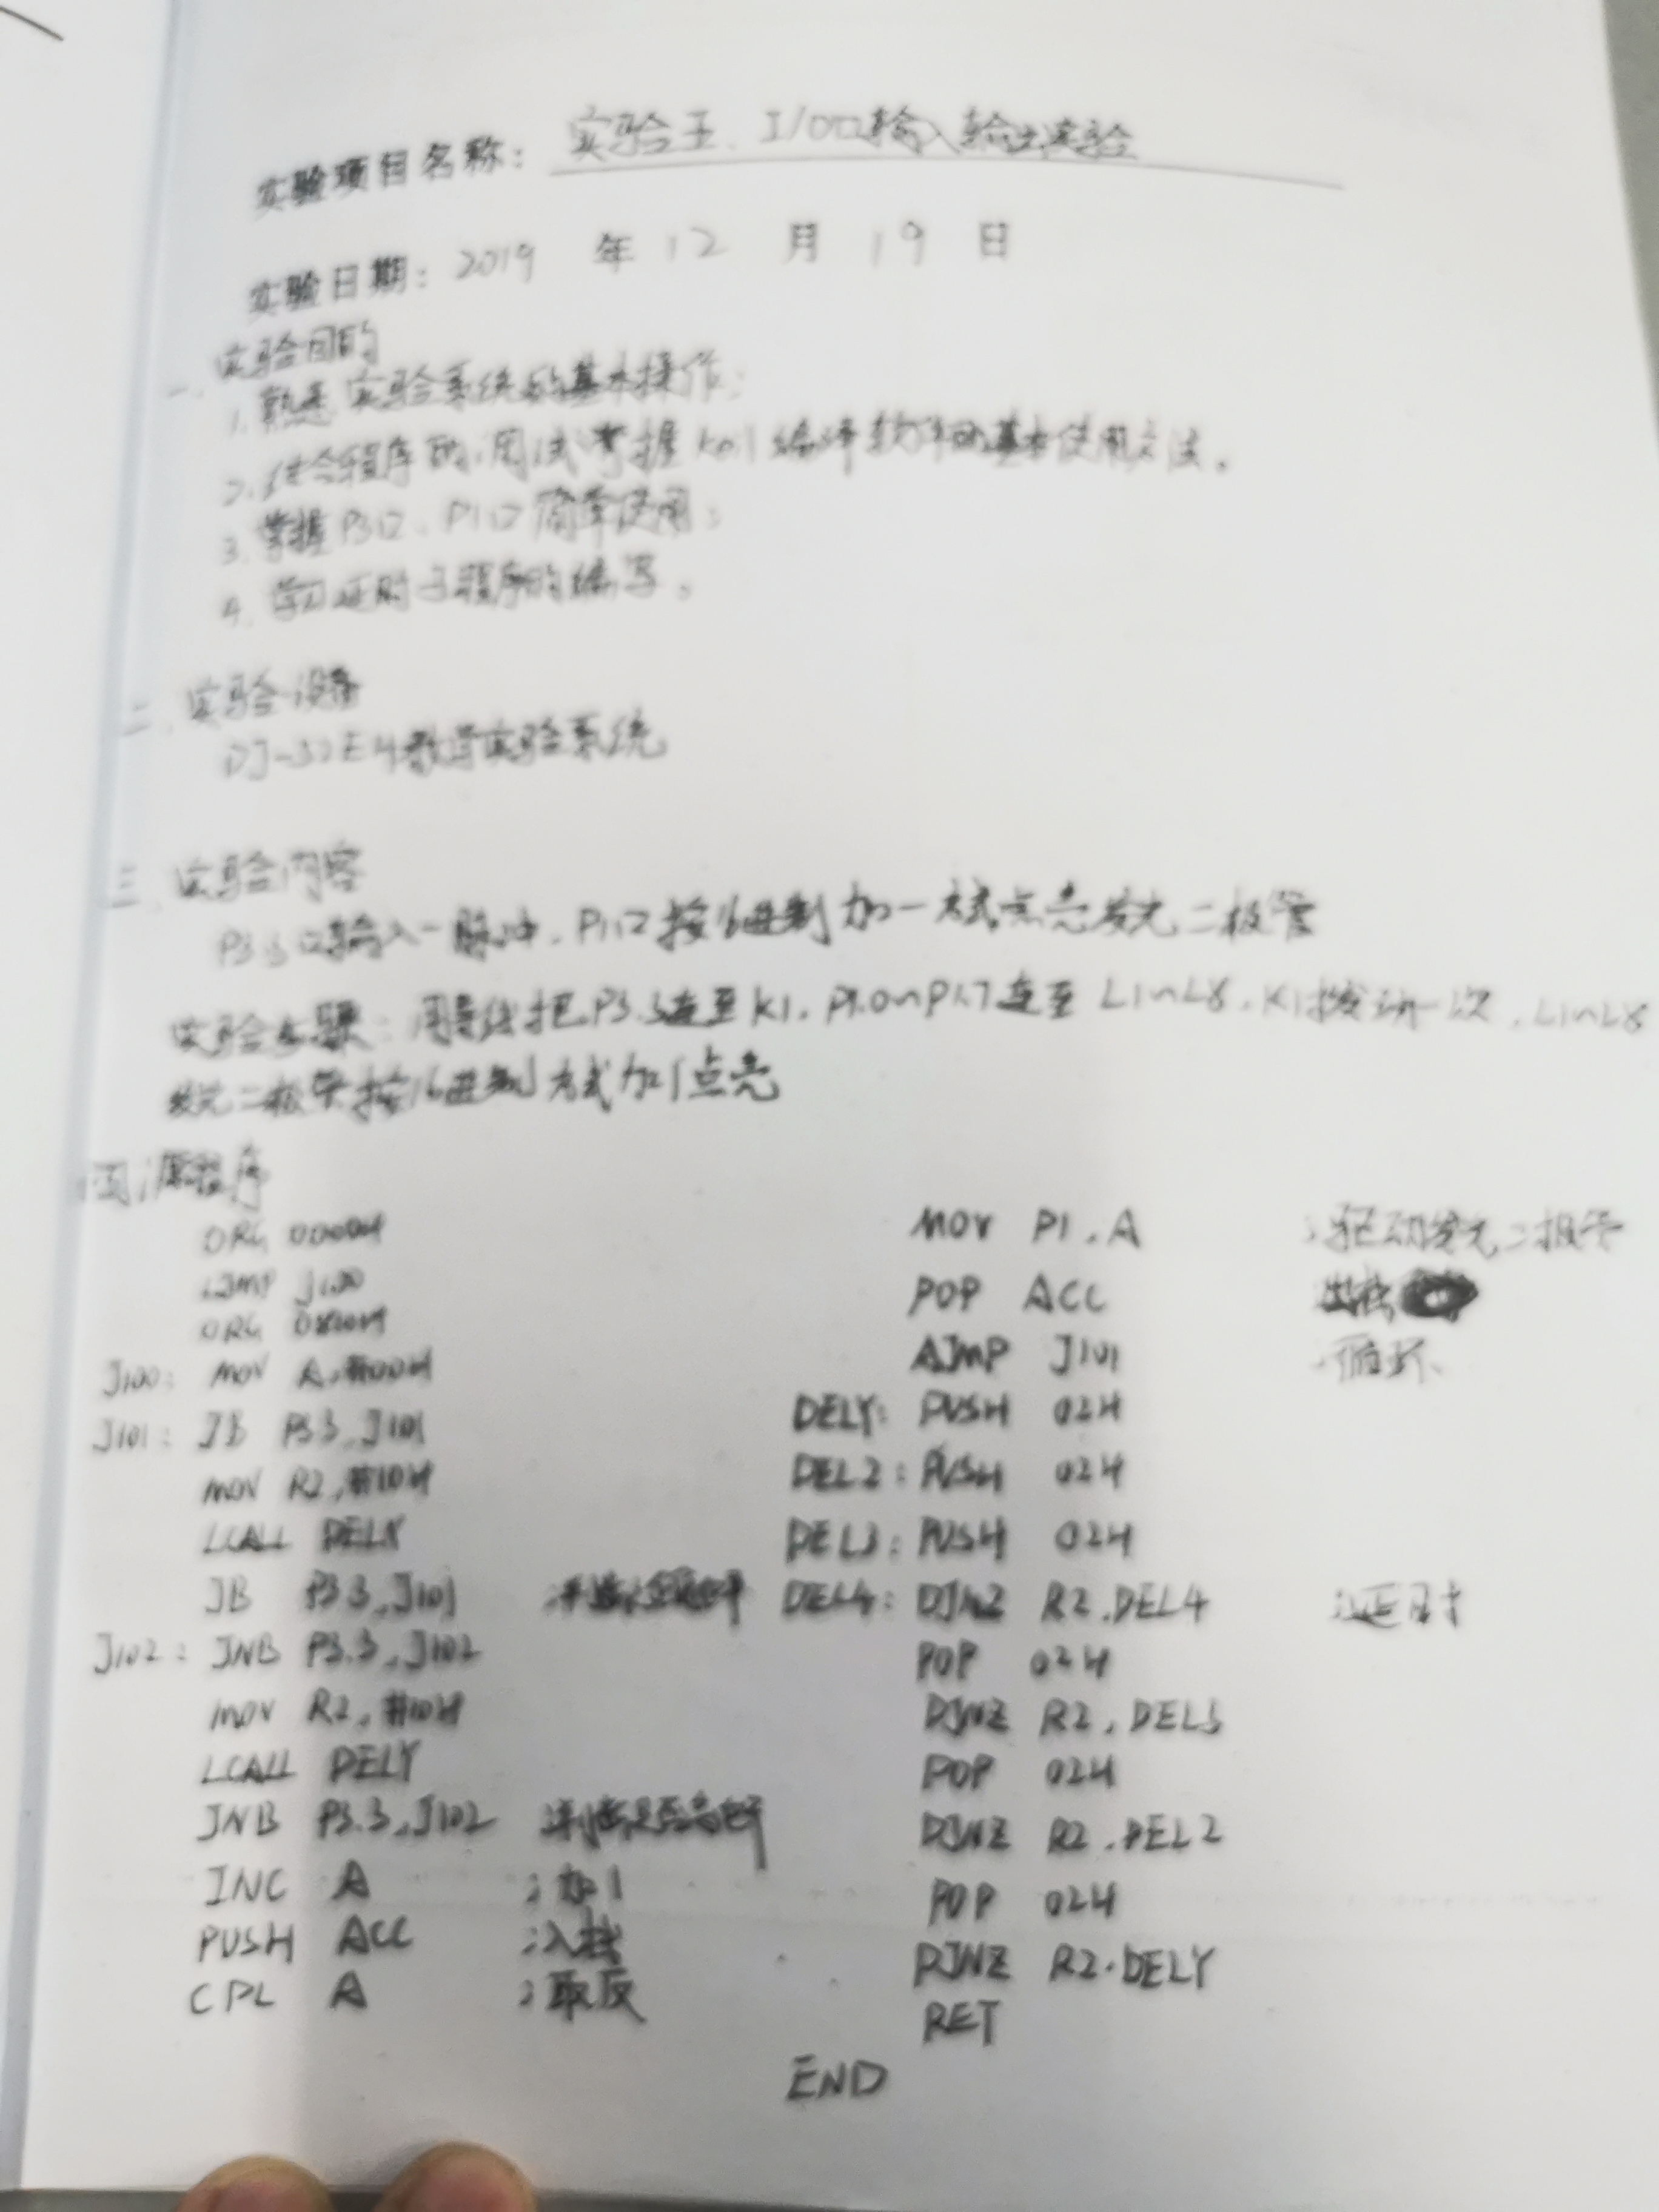 实验项目名称：实验五、I/O口输入输出实验
实验日期：2019 年 12 月 19 日
一、实验目的
1. 熟悉实验系统的基本操作；
2. 结合程序的调试掌握Keil编译软件的基本使用方法。
3. 掌握P3口、P1口简单使用；
4. 学习延时子程序的编写。
二、实验设备
教学实验系统
三、实验内容
P3.3口输入一脉冲，P1口按16进制加一方式点亮发光二极管
实验步骤：用导线把P3.3连至K1，P1.0~P1.7连至L1~L8，K1拨动一次，L1~L8
发光二极管按16进制方式加1点亮
四、源程序
ORG 0000H
LJMP J100
ORG
J100: MOV A,#00H
J101: JB P3.3,J101
MOV R2,#10H
LCALL DELY
JB P3.3,J101
J102: JNB P3.3,J102
MOV R2,#10H
LCALL DELY
JNB P3.3,J102 ;判断是否高电平
INC A ;加1
PUSH ACC ;入栈
CPL A ;取反
MOV P1,A ;驱动发光二极管
POP ACC 出栈
AJMP J101 ;循环
DELY: PUSH 02H
DEL2: PUSH 02H
DEL3: PUSH 02H
DEL4: DJNZ R2,DEL4 ;延时
POP 02H
DJNZ R2,DEL3
POP 02H
DJNZ R2,DEL2
POP 02H
DJNZ R2,DELY
RET
END